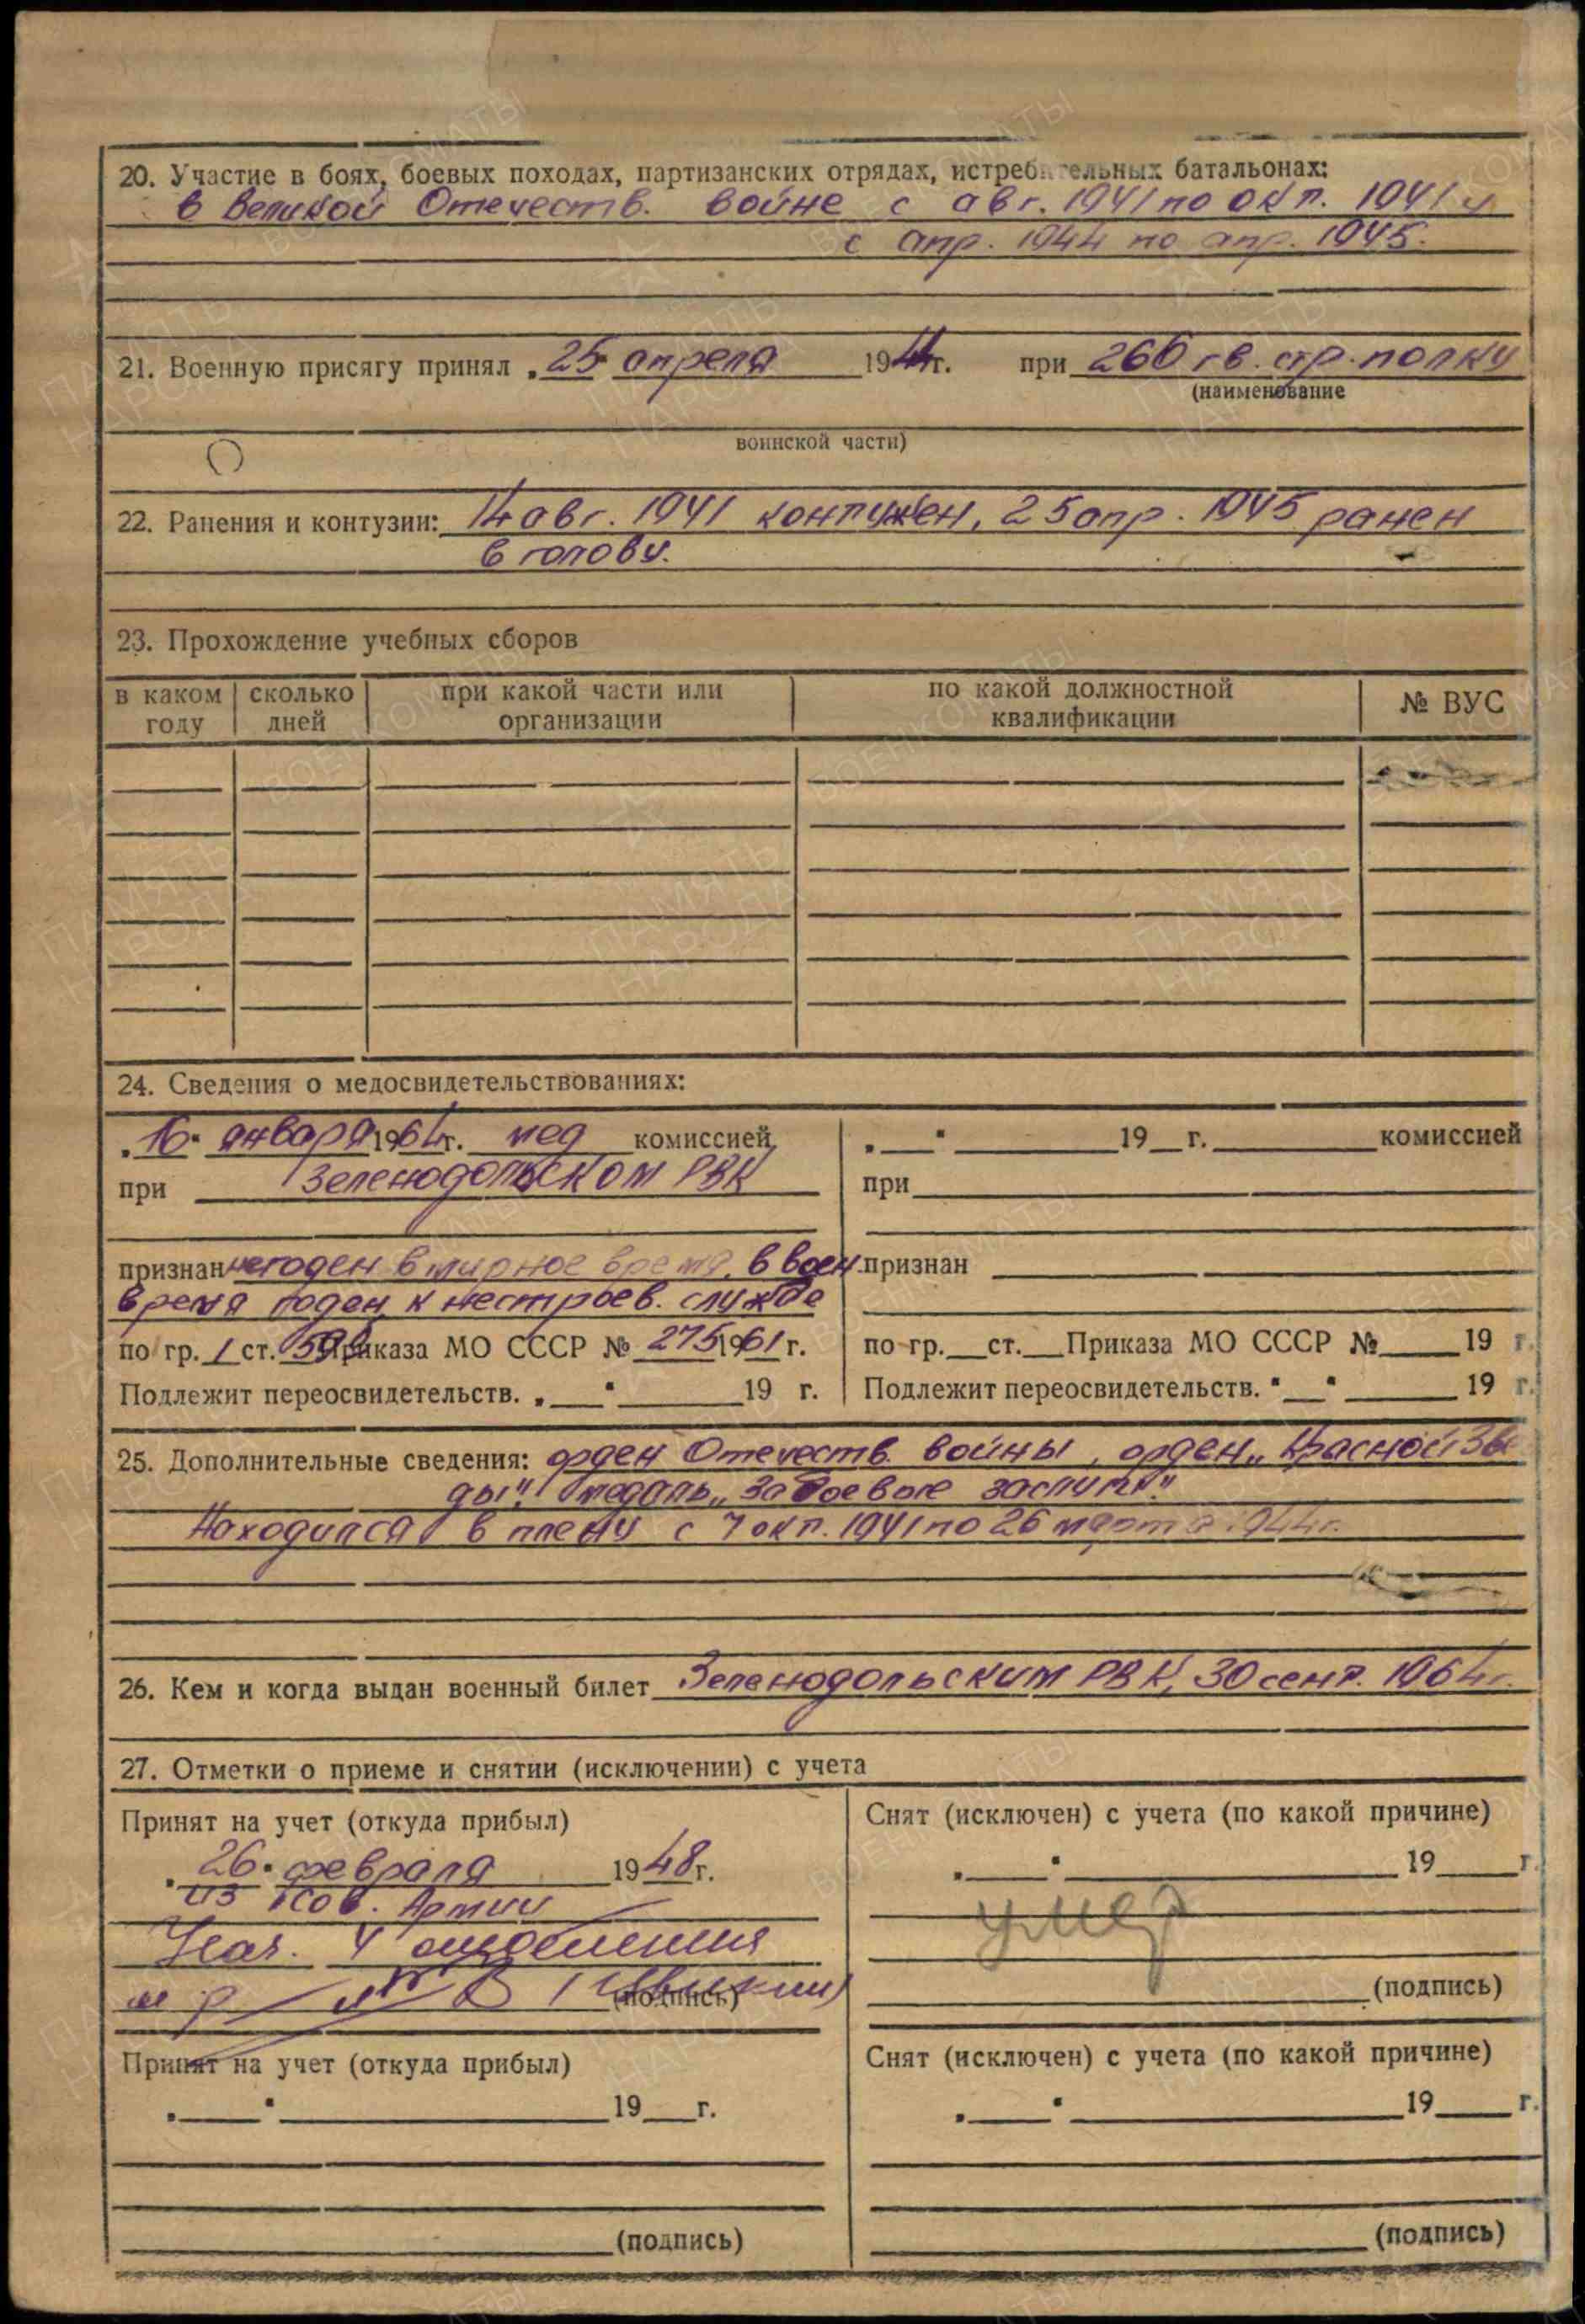 20. Участие в боях, боевых походах, партизанских отрядах, истребительных батальонах:
в Великой Отечеств. войне с авг. 1941 по окт. 1941 и
с апр. 1944 по апр. 1945.
21. Военную присягу принял „25" апреля 1944 г. при 266 гв. стр. полку
(наименование
воинской части)
22. Ранения и контузии: 14 авг. 1941 контужен, 25 апр. 1945 ранен
в голову.
23. Прохождение учебных сборов
в каком году | сколько дней | при какой части или организации | по какой должностной квалификации | № ВУС
24. Сведения о медосвидетельствованиях:
„16" января 1964 г. мед комиссией
при Зеленодольском РВК
признан негоден в мирное время, в воен.
время годен к нестроев. службе
по гр. 1 ст. Приказа МО СССР № 275 1961 г.
Подлежит переосвидетельств. „ " 19 г.
„ " 19 г. комиссией
при
признан
по гр. ст. Приказа МО СССР № 19 г.
Подлежит переосвидетельств. " " 19 г.
25. Дополнительные сведения: орден Отечеств. войны, орден „Красной Звез
ды", медаль „За боевые заслуги"
Находился в плену с 7 окт. 1941 по 26 марта 1944 г.
26. Кем и когда выдан военный билет Зеленодольским РВК, 30 сент. 1964 г.
27. Отметки о приеме и снятии (исключении) с учета
Принят на учет (откуда прибыл)
„26" февраля 1948 г.
из Сов. Армии
Нач. 4 отделения
м-р
(подпись)
Снят (исключен) с учета (по какой причине)
„ " 19 г.
умер
(подпись)
Принят на учет (откуда прибыл)
„ " 19 г.
(подпись)
Снят (исключен) с учета (по какой причине)
„ " 19 г.
(подпись)
ПАМЯТЬ НАРОДА
ВОЕНКОМАТЫ